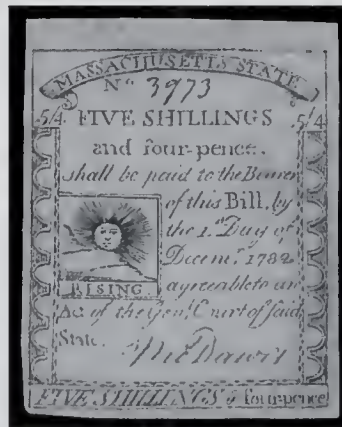 MASSACHUSETTS STATE
No 3973
5/4 FIVE SHILLINGS 5/4
and four-pence.
shall be paid to the Bearer
of this Bill, by
the 1st Day of
Decemr. 1782
RISING
agreeable to an
Act of the Genl. Court of said
State.
FIVE SHILLINGS & four-pence